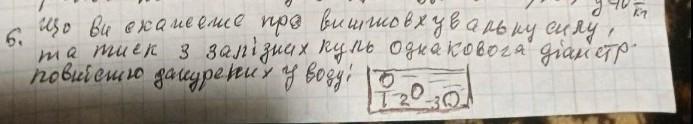 g=10 Н/кг
6. Що ви скажете про виштовхувальну силу,
та тиск 3 залізних куль однакового діаметр.
повністю занурених у воду?
1 2 3